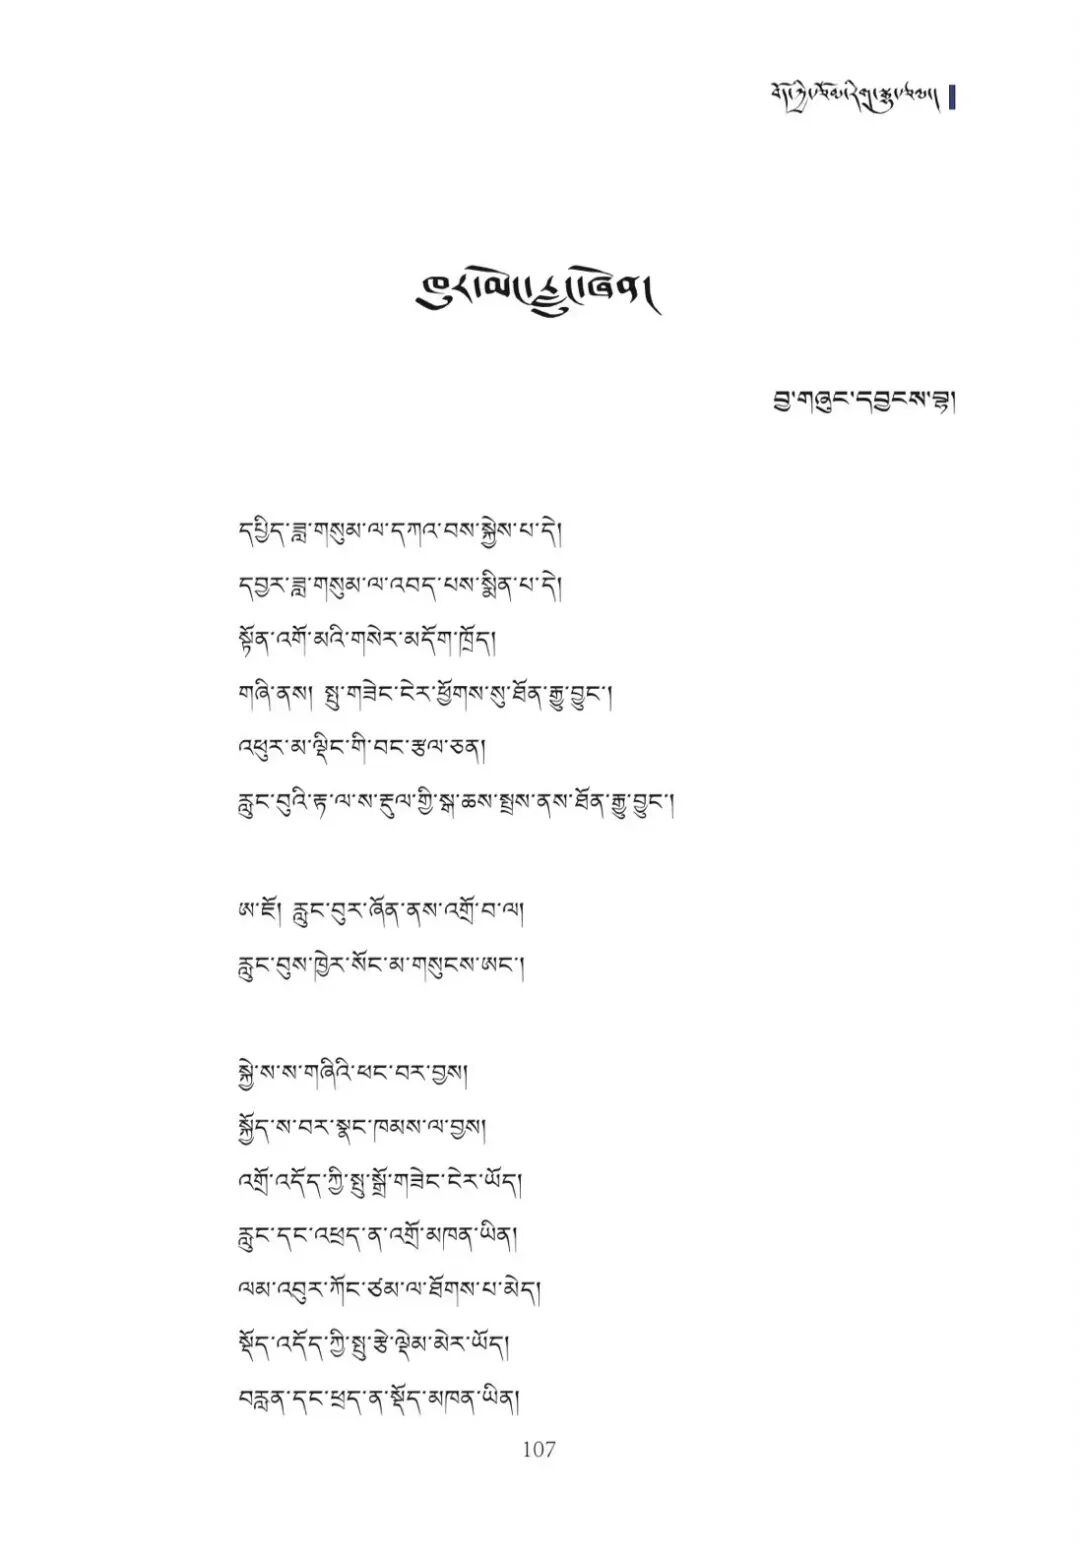 བྱ་གཞུང་དབྱངས་བྷ།
དཔྱིད་ཟླ་གསུམ་ལ་དཀའ་བས་སྐྱེས་པ་དེ།
དབྱར་ཟླ་གསུམ་ལ་འབད་པས་སྨིན་པ་དེ།
སྟོན་འགོ་མའི་གསེར་མདོག་ཁྲོད།
གཞི་ནས། སྤུ་གཟེང་ངེར་ཕྱོགས་སུ་ཐོན་རྒྱུ་བྱུང་།
འཕུར་མ་ལྡིང་གི་བང་རྩལ་ཅན།
རླུང་བུའི་རྟ་ལ་ས་རྡུལ་གྱི་སྒ་ཆས་སྤྲས་ནས་ཐོན་རྒྱུ་བྱུང་།
ཨ་ཇོ། རླུང་བུར་ཞོན་ནས་འགྲོ་བ་ལ།
རླུང་བུས་ཁྱེར་སོང་མ་གསུངས་ཨང་།
སྐྱེ་ས་ས་གཞིའི་ཕང་བར་བྱས།
སྐྱོད་ས་བར་སྣང་ཁམས་ལ་བྱས།
འགྲོ་འདོད་ཀྱི་སྤུ་སྒྲོ་གཟེང་ངེར་ཡོད།
རླུང་དང་འཕྲད་ན་འགྲོ་མཁན་ཡིན།
ལམ་འབུར་ཀོང་ཙམ་ལ་ཐོགས་པ་མེད།
སྡོད་འདོད་ཀྱི་སྤུ་རྩེ་ལྡེམ་མེར་ཡོད།
བརླན་དང་ཕྲད་ན་སྡོད་མཁན་ཡིན།
107